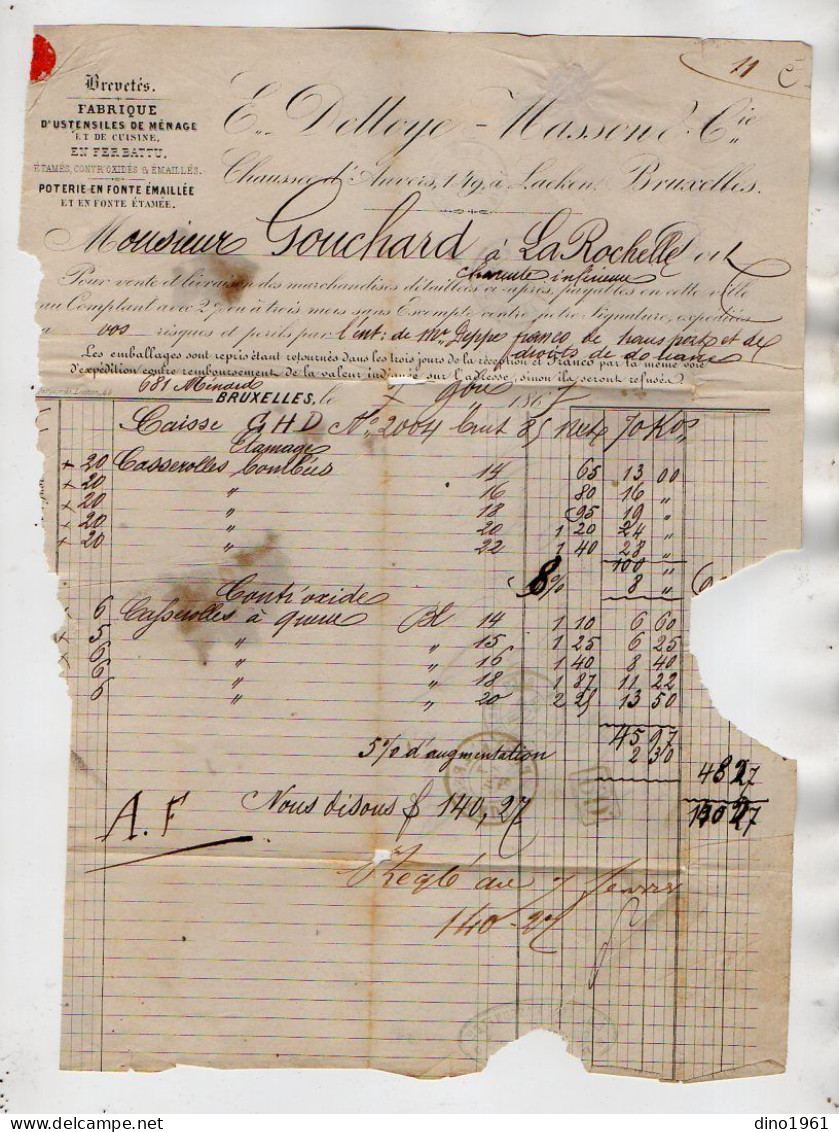 11
Brevetés.
FABRIQUE
D'USTENSILES DE MÉNAGE
ET DE CUISINE,
EN FER BATTU,
ÉTAMÉS, CONTR'OXIDÉS & ÉMAILLÉS.
POTERIE EN FONTE ÉMAILLÉE
ET EN FONTE ÉTAMÉE.
E. Delloye-Masson & Cie
Chaussée d'Anvers, 149, à Laeken, Bruxelles.
Monsieur Gouchard à La Rochelle Doit
Charente inférieure
Pour vente et livraison des marchandises détaillées ci après, payables en cette ville
au Comptant avec 2% ou à trois mois sans Escompte contre notre Signature, expédiées
à vos risques et perils par l'ent: de Mr Deppe franco de transport et de
droits de douane
Les emballages sont repris étant retournés dans les trois jours de la réception et Franco par la même voie
d'expédition contre remboursement de la valeur indiquée sur l'adresse, sinon ils seront refusés.
681 Ménard
BRUXELLES, le 7 9bre 1867
Caisse GHD No 2004 brut 85 nets 70 Kos
Etamage
20 Casserolles bombées 14 65 13 00
20 " 16 80 16 "
20 " 18 95 19 "
20 " 20 1 20 24 "
20 " 22 1 40 28 "
100 "
8% 8 "
Contr'oxide
6 Casserolles à queue Bl 14 1 10 6 60
5 " " 15 1 25 6 25
6 " " 16 1 40 8 40
6 " " 18 1 87 11 22
6 " " 20 2 25 13 50
45 97
5% d'augmentation 2 30
48 27
Nous disons f 140,27 140 27
A.F
Reglé au 7
140-27
dino1961